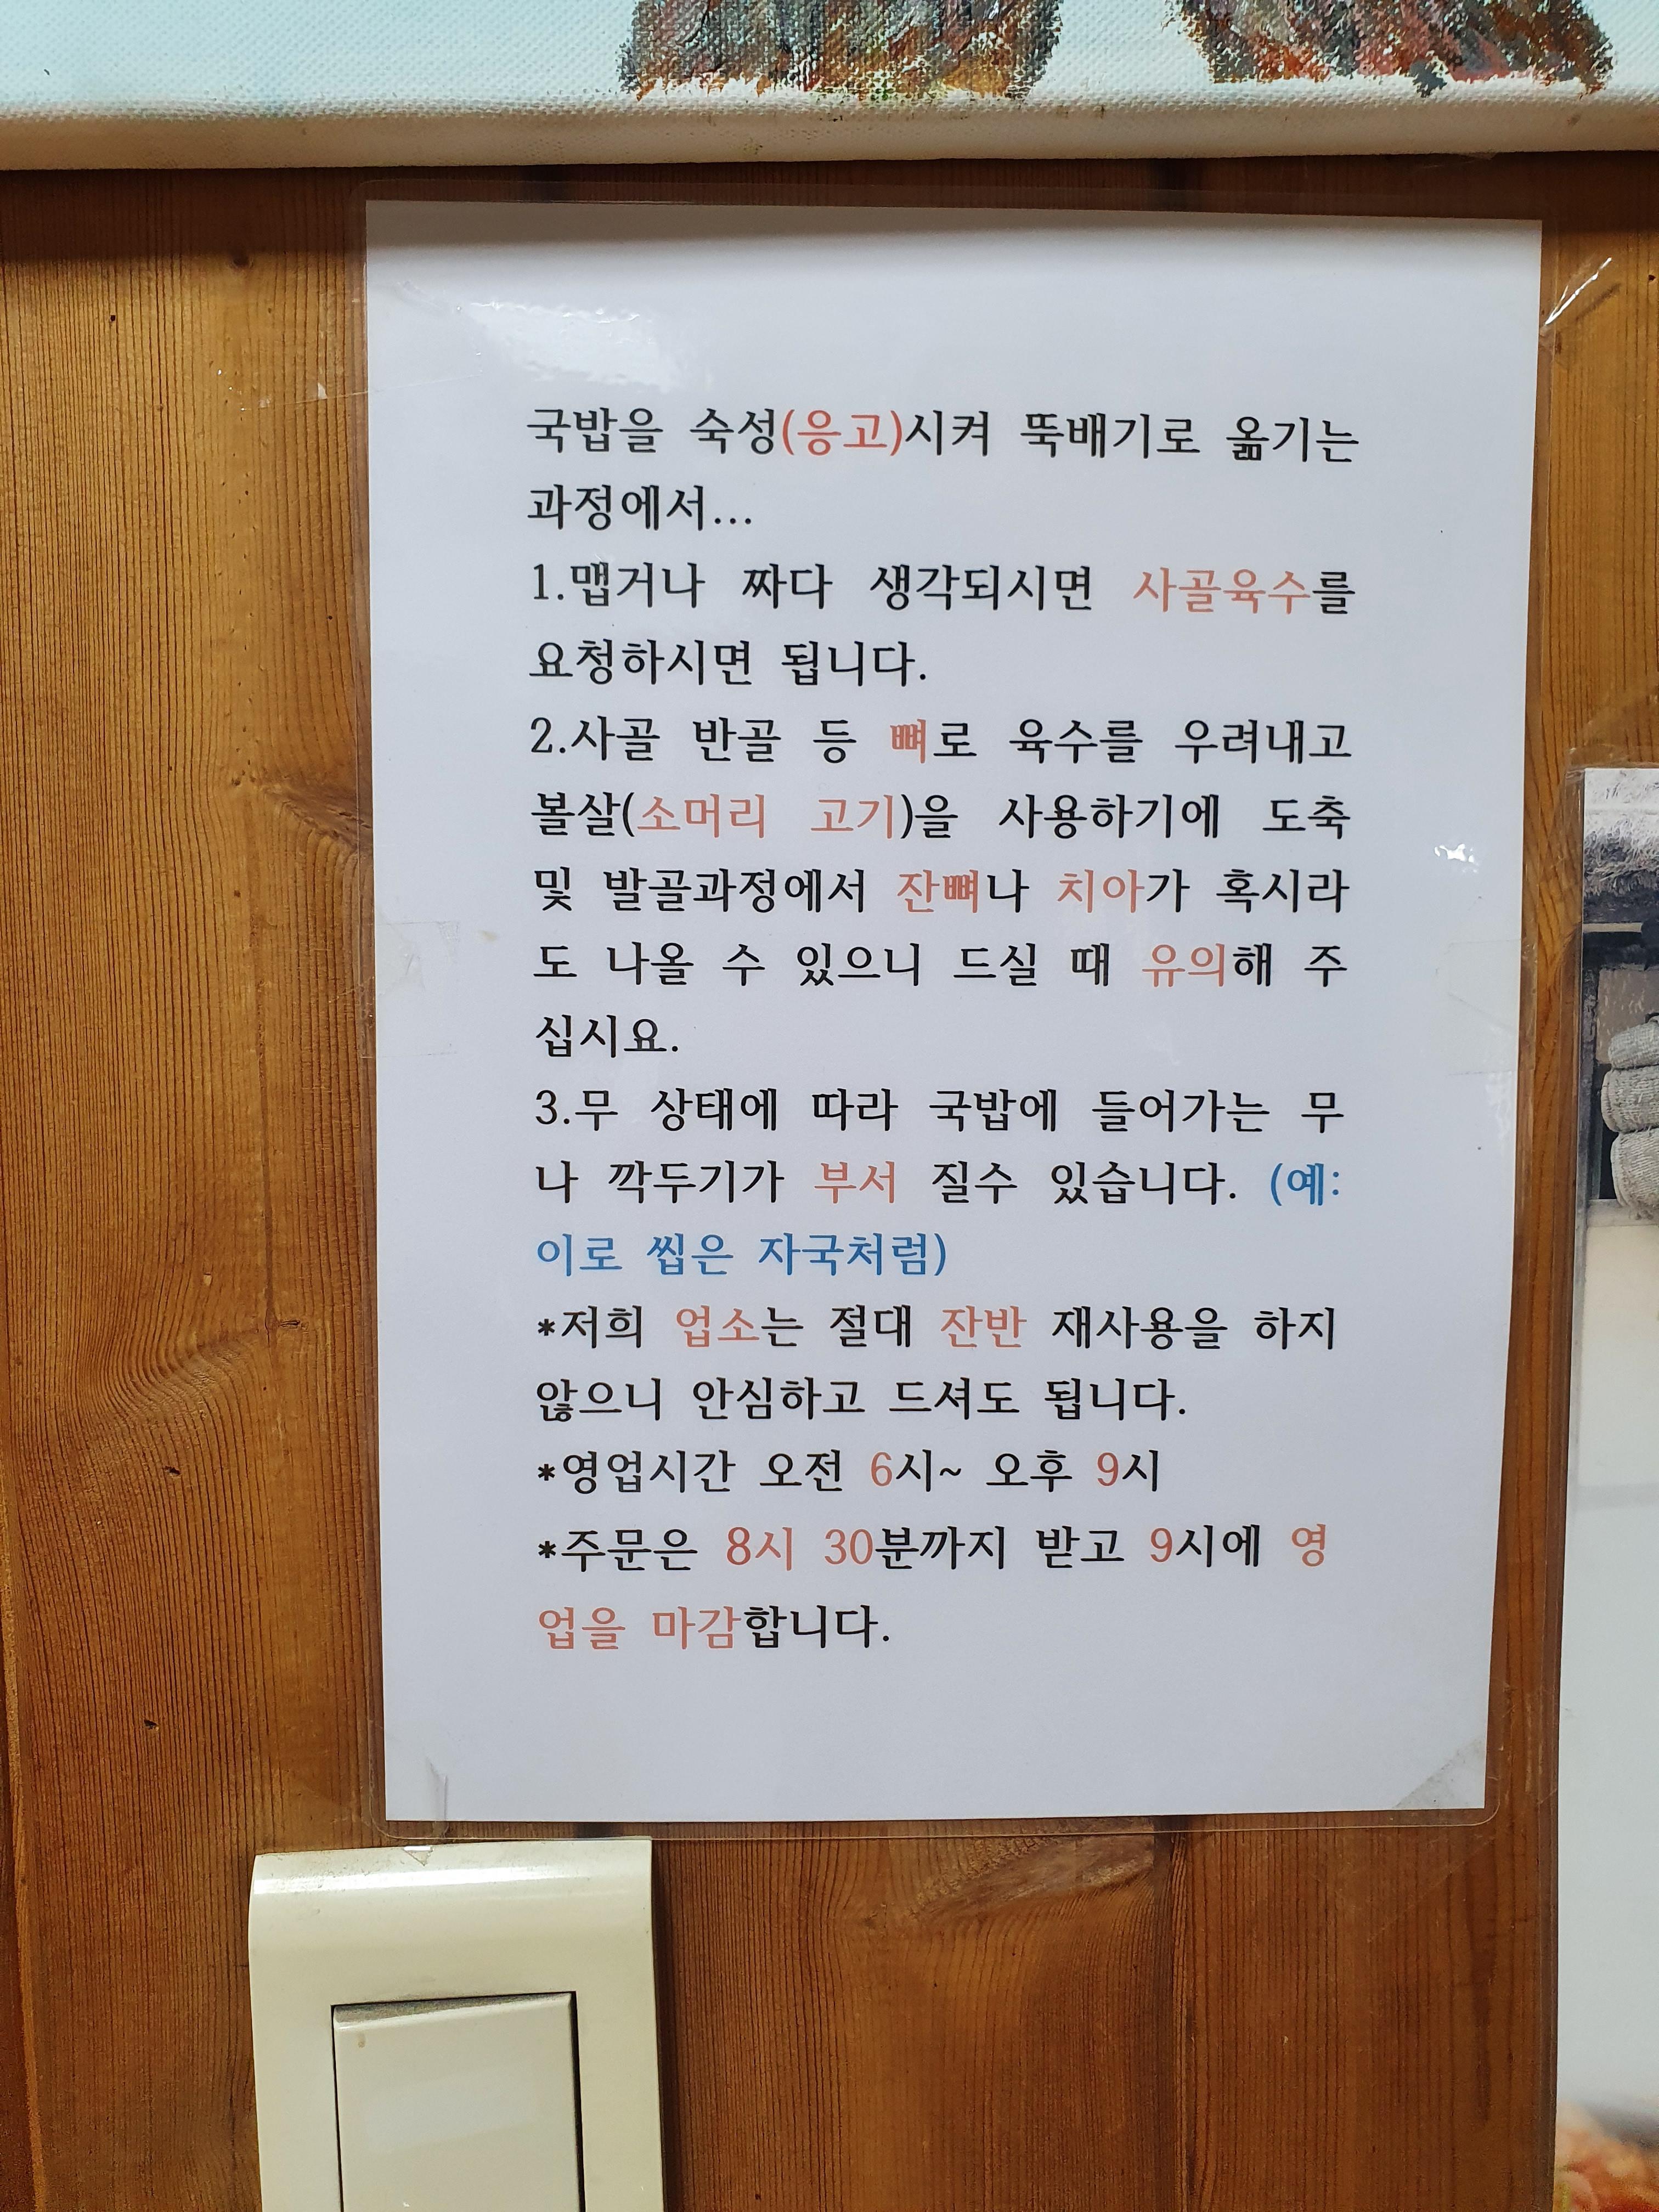 국밥을 숙성(응고)시켜 뚝배기로 옮기는
과정에서...
1.맵거나 짜다 생각되시면 사골육수를
요청하시면 됩니다.
2.사골 반골 등 뼈로 육수를 우려내고
볼살(소머리 고기)을 사용하기에 도축
및 발골과정에서 잔뼈나 치아가 혹시라
도 나올 수 있으니 드실 때 유의해 주
십시요.
3.무 상태에 따라 국밥에 들어가는 무
나 깍두기가 부서 질수 있습니다. (예:
이로 씹은 자국처럼)
*저희 업소는 절대 잔반 재사용을 하지
않으니 안심하고 드셔도 됩니다.
*영업시간 오전 6시~ 오후 9시
*주문은 8시 30분까지 받고 9시에 영
업을 마감합니다.